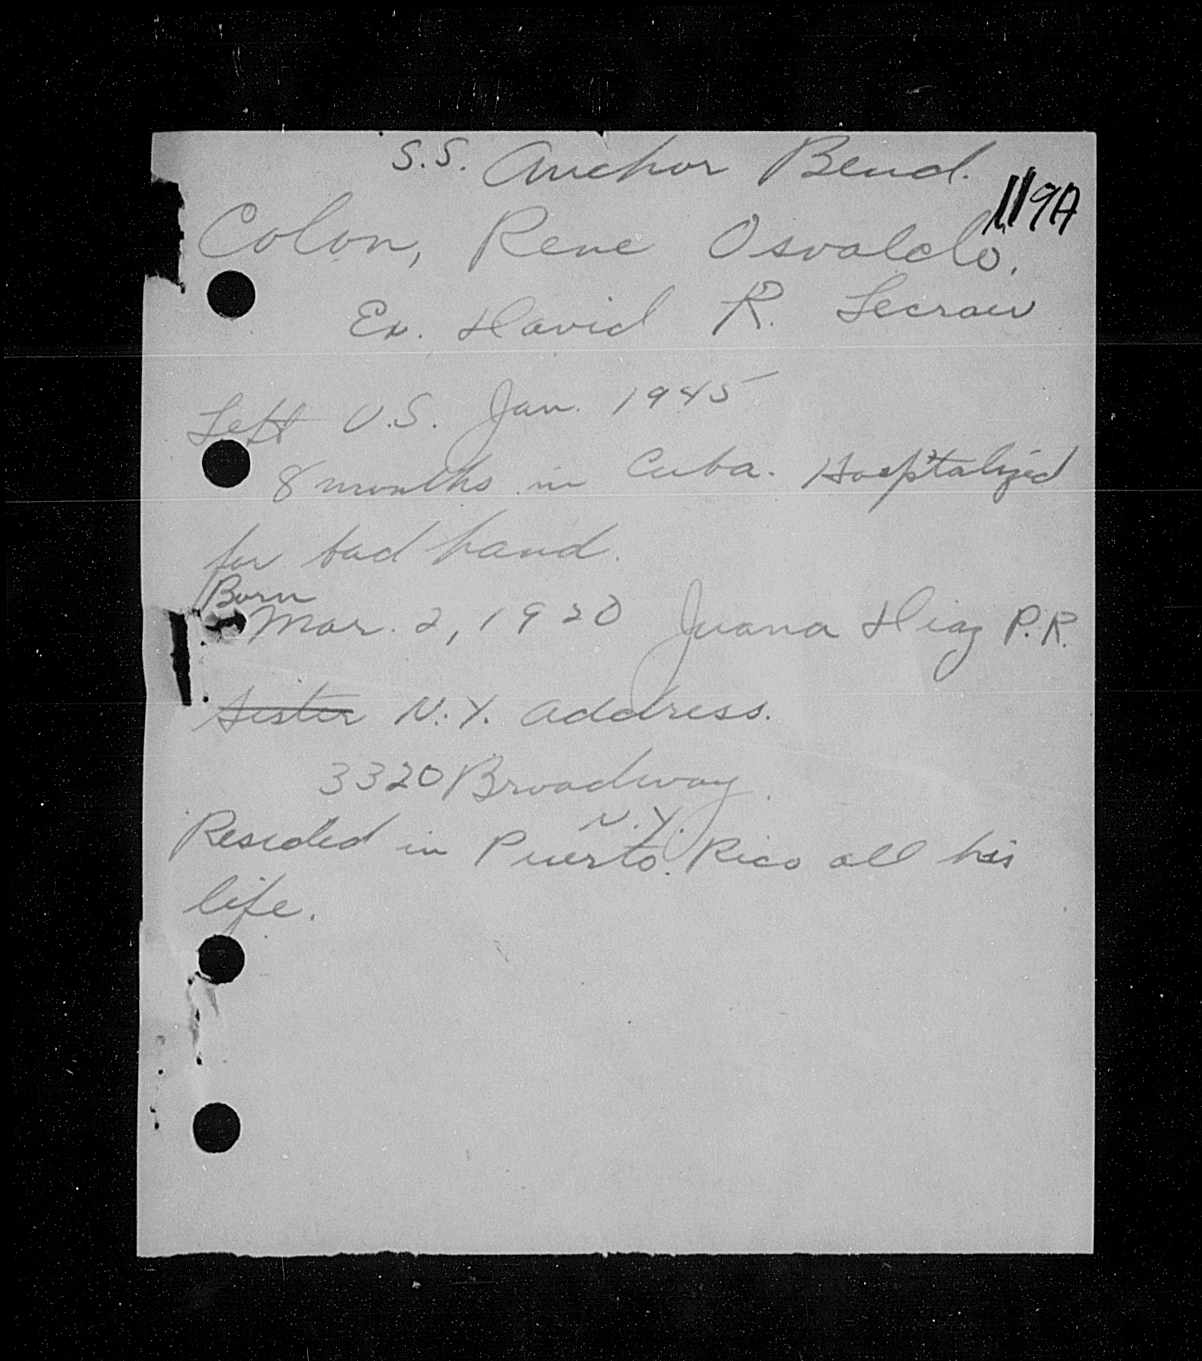 S.S. Anchor Bend.
119A
Colon, Rene Osvaldo.
Ex. David R. Lecraw
Left U.S. Jan. 1945
8 months in Cuba. Hosptalized
for bad hand.
Born
Mar. 2, 1920 Juana Diaz P.R.
Sister N.Y. address.
3320 Broadway.
N.Y.
Resided in Puerto Rico all his
life.